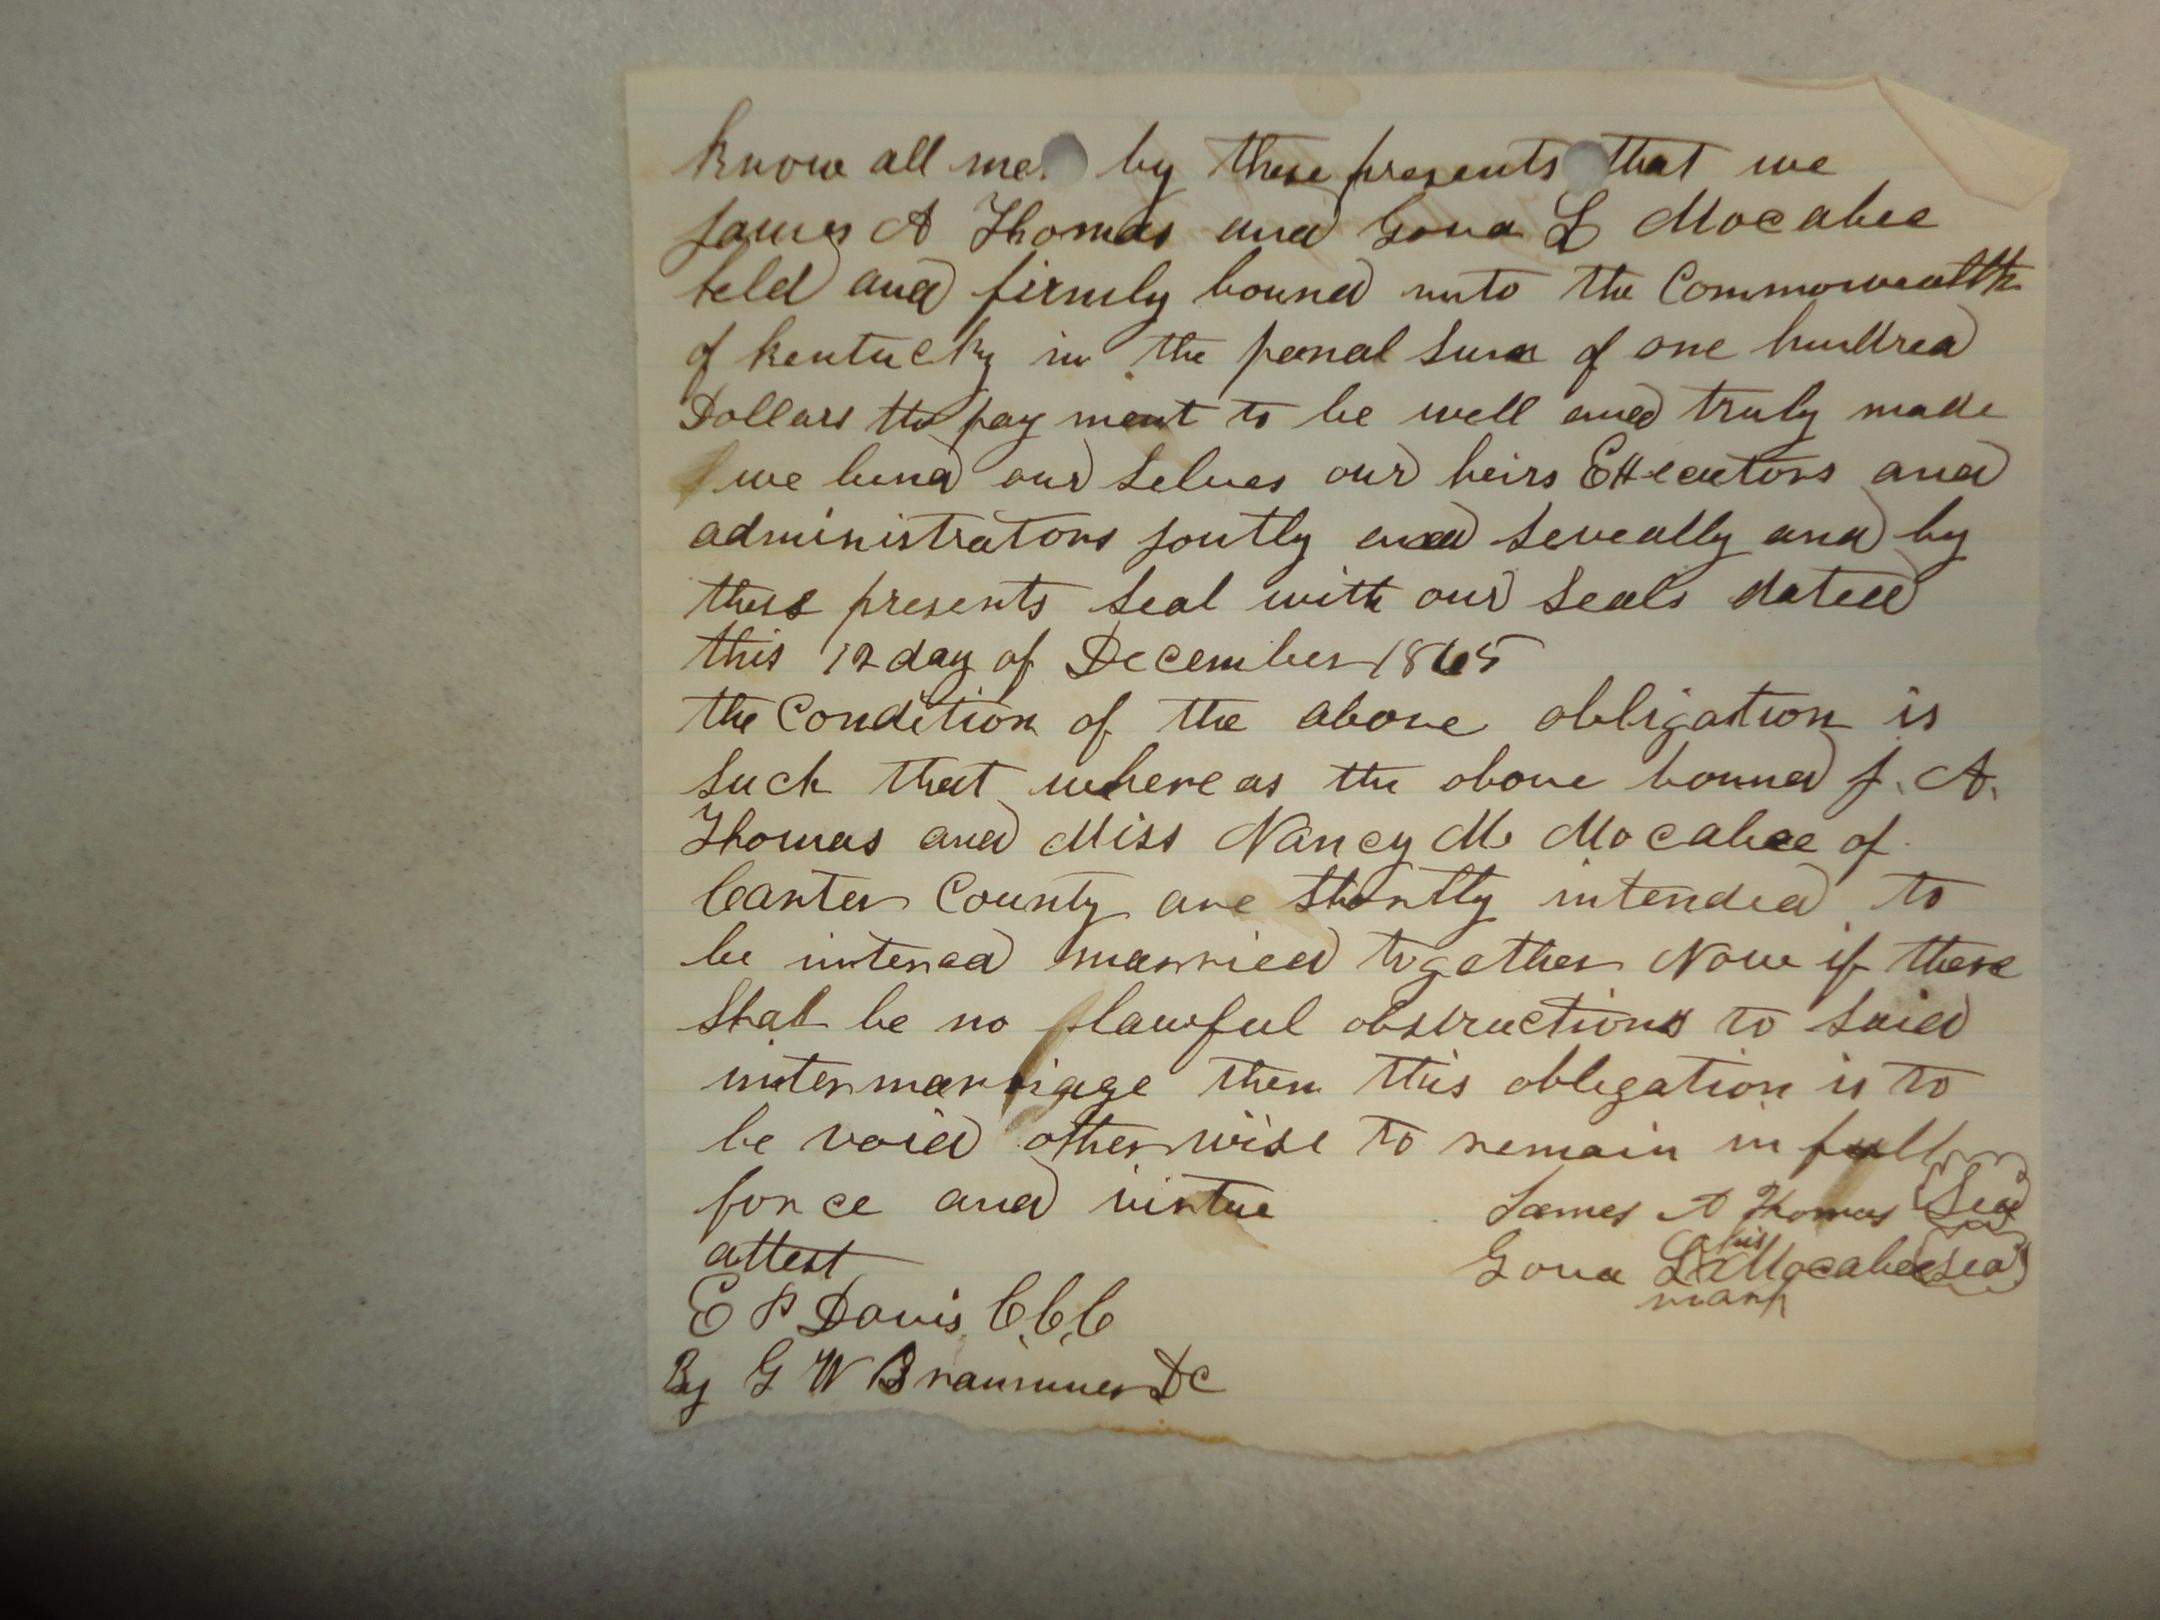 Know all me by these presents that we
James A Thomas and Gova L Mocabee
held and firmly bound unto the Commowealth
of Kentucky in the penal sum of one hundred
Dollars the pay ment to be well and truly made
we bind our selves our heirs Executors and
administrators jontly and seveally and by
these presents seal with our seals dated
this 12 day of December 1865
the Condition of the above obligation is
such that where as the above bound J. A.
Thomas and Miss Nancy M. Mocabee of
Carter County are shortly intended to
be intered married together Now if there
shal be no lawful obstructions to said
inter marriage then this obligation is to
be void other wise to remain in full
force and virtue
James A Thomas Seal
attest
his
Gova L X Mocabee Seal
mark
E P Davis C.C.C
By G W Brammer DC